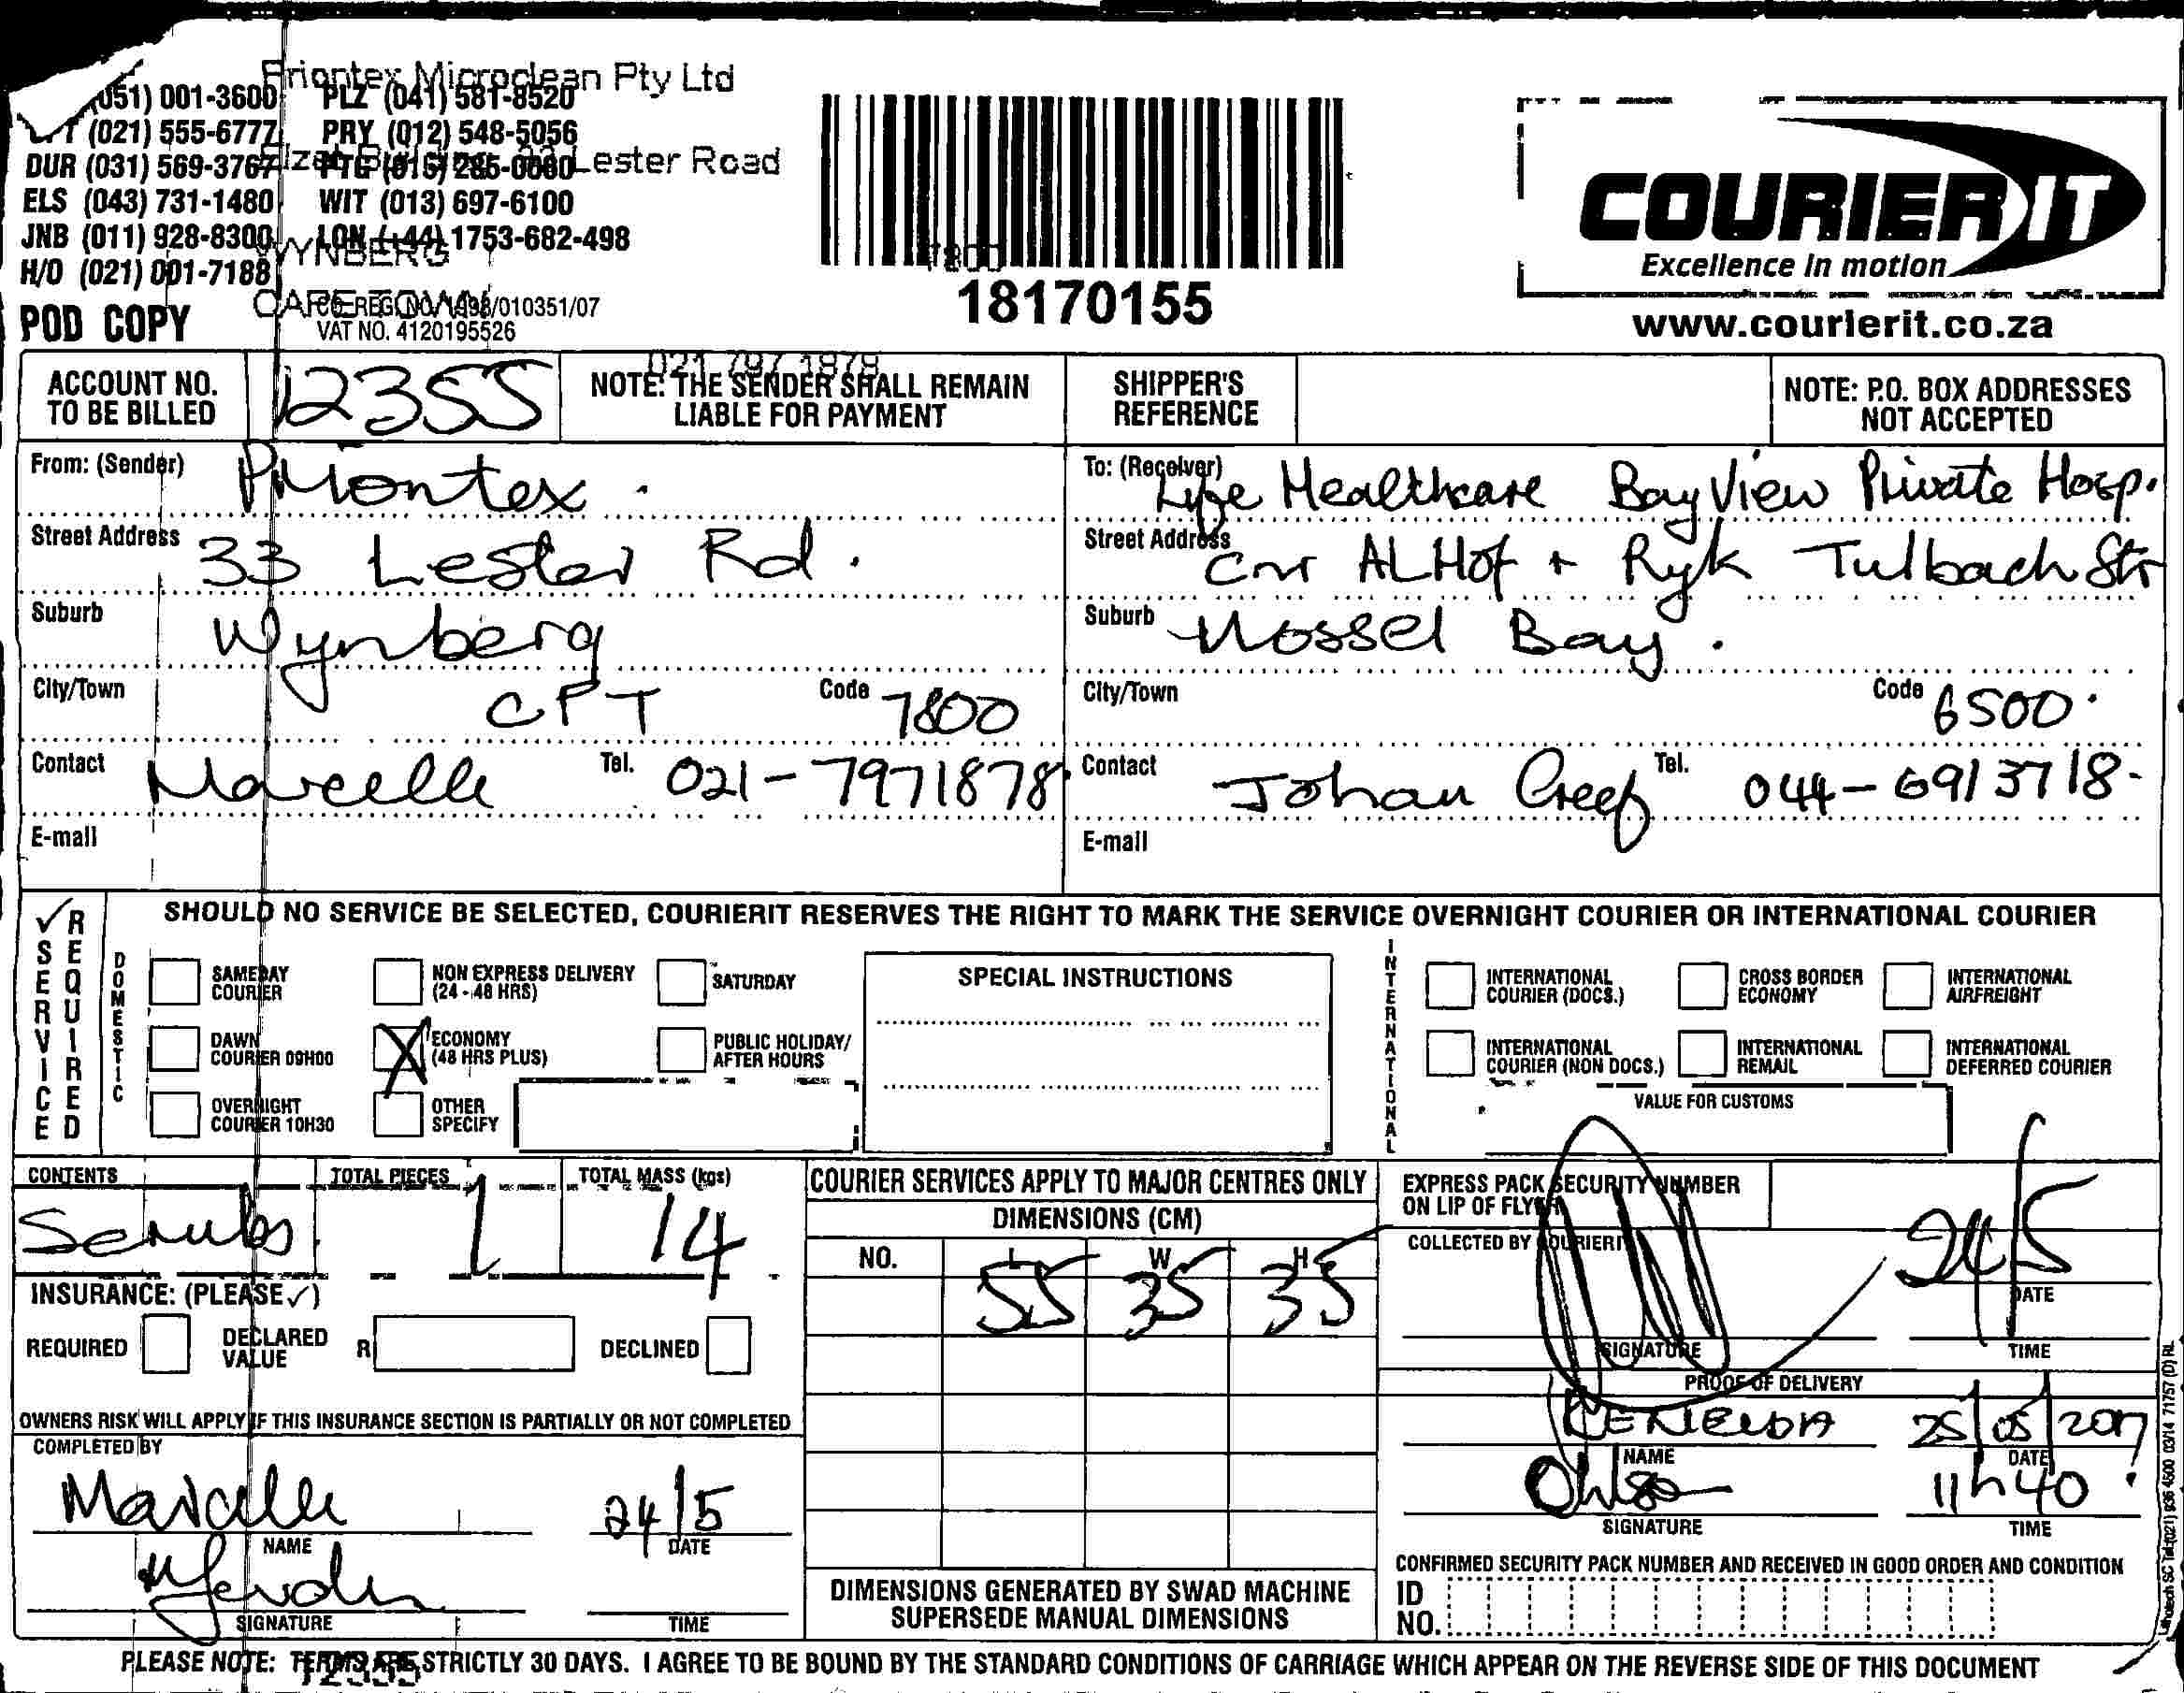 Priontex Microclean Pty Ltd
(051) 001-3600 PLZ (041) 581-8520
(021) 555-6777 PRY (012) 548-5056
DUR (031) 569-3767 PTG (015) 285-0080
33 Lester Road
ELS (043) 731-1480 WIT (013) 697-6100
JNB (011) 928-8300 LON (+44) 1753-682-498
WYNBERG
7800
H/O (021) 001-7188
CAPE TOWN
POD COPY
CO. REG. NO. 1998/010351/07
VAT NO. 4120195526
18170155
COURIER IT
Excellence in motion
www.courierit.co.za
021 797 1878
ACCOUNT NO. TO BE BILLED
12355
NOTE: THE SENDER SHALL REMAIN
LIABLE FOR PAYMENT
SHIPPER'S
REFERENCE
NOTE: P.O. BOX ADDRESSES
NOT ACCEPTED
From: (Sender) Priontex.
Street Address 33 Lester Rd.
Suburb Wynberg
City/Town CPT Code 7800
Contact Marcelle Tel. 021-7971878
E-mail
To: (Receiver) Life Healthcare Bay View Private Hosp.
Street Address Cnr AL Hof + Ryk Tulbach Str
Suburb Mossel Bay.
City/Town Code 6500.
Contact Johan Greef Tel. 044-6913718-
E-mail
SERVICE REQUIRED
SHOULD NO SERVICE BE SELECTED, COURIERIT RESERVES THE RIGHT TO MARK THE SERVICE OVERNIGHT COURIER OR INTERNATIONAL COURIER
DOMESTIC
SAMEDAY
COURIER
NON EXPRESS DELIVERY
(24 - 48 HRS)
SATURDAY
DAWN
COURIER 09H00
X ECONOMY
(48 HRS PLUS)
PUBLIC HOLIDAY/
AFTER HOURS
OVERNIGHT
COURIER 10H30
OTHER
SPECIFY
SPECIAL INSTRUCTIONS
INTERNATIONAL
INTERNATIONAL
COURIER (DOCS.)
CROSS BORDER
ECONOMY
INTERNATIONAL
AIRFREIGHT
INTERNATIONAL
COURIER (NON DOCS.)
INTERNATIONAL
REMAIL
INTERNATIONAL
DEFERRED COURIER
VALUE FOR CUSTOMS
CONTENTS
Scrubs
TOTAL PIECES
1
TOTAL MASS (kgs)
14
INSURANCE: (PLEASE ✓)
REQUIRED
DECLARED
VALUE
R
DECLINED
OWNERS RISK WILL APPLY IF THIS INSURANCE SECTION IS PARTIALLY OR NOT COMPLETED
COMPLETED BY
Marcelle 24/5
NAME DATE
SIGNATURE TIME
COURIER SERVICES APPLY TO MAJOR CENTRES ONLY
DIMENSIONS (CM)
NO. L W H
55 35 35
DIMENSIONS GENERATED BY SWAD MACHINE
SUPERSEDE MANUAL DIMENSIONS
EXPRESS PACK SECURITY NUMBER
ON LIP OF FLYER
COLLECTED BY COURIERIT
24/5
DATE
SIGNATURE TIME
PROOF OF DELIVERY
25/05/2017
NAME DATE
11h40
SIGNATURE TIME
CONFIRMED SECURITY PACK NUMBER AND RECEIVED IN GOOD ORDER AND CONDITION
ID
NO.
PLEASE NOTE: TERMS ARE STRICTLY 30 DAYS. I AGREE TO BE BOUND BY THE STANDARD CONDITIONS OF CARRIAGE WHICH APPEAR ON THE REVERSE SIDE OF THIS DOCUMENT
12355